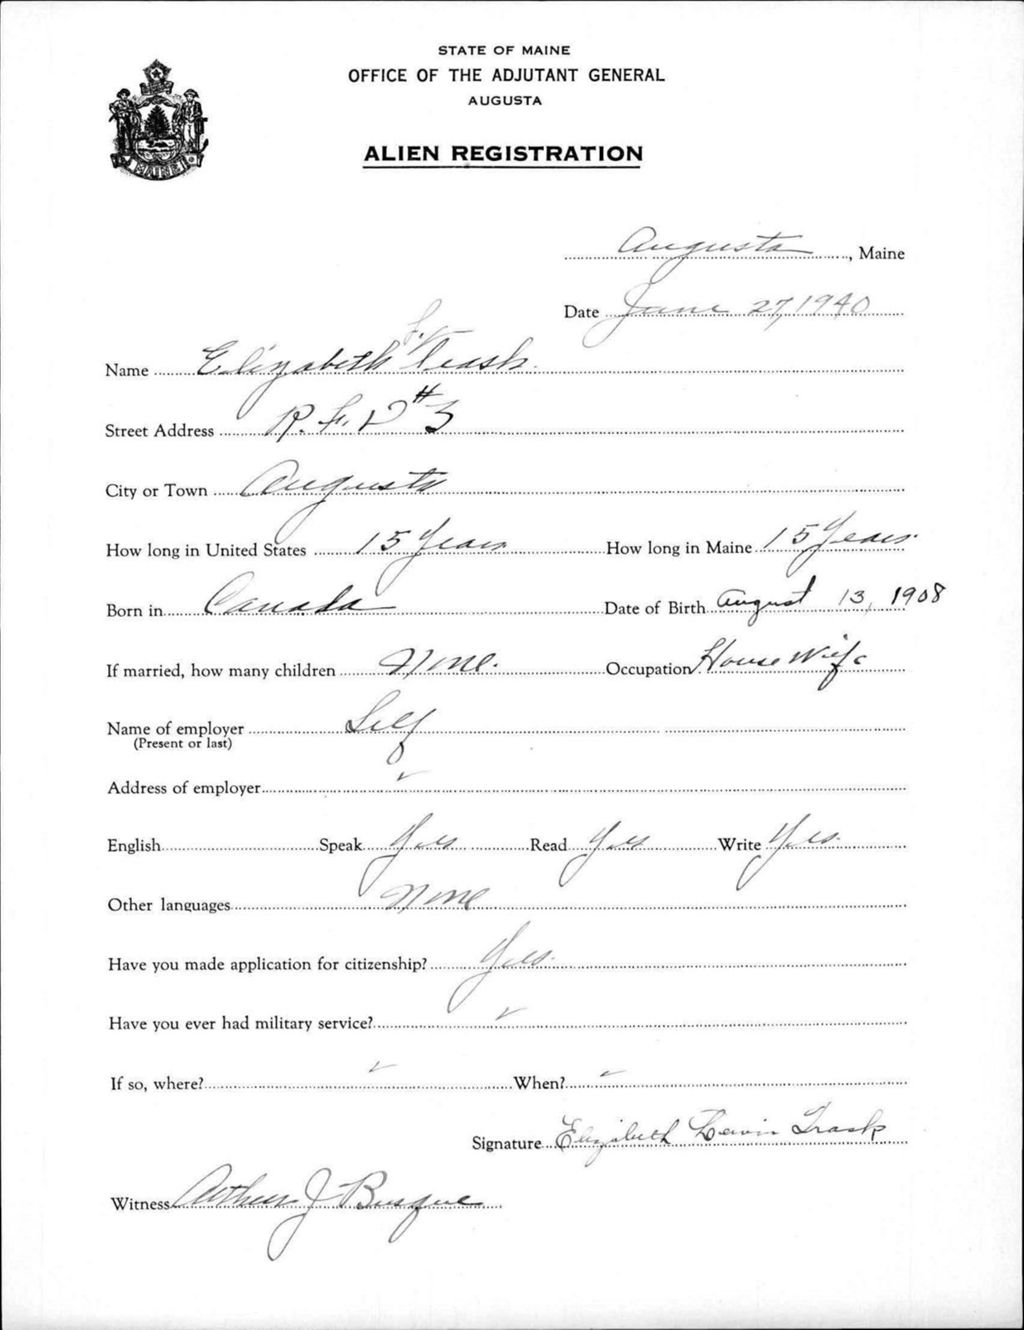 STATE OF MAINE
OFFICE OF THE ADJUTANT GENERAL
AUGUSTA
ALIEN REGISTRATION
MAINE
Augusta, Maine
Date June 27, 1940
Name Elizabeth L. Trask
Street Address R.F.D #3
City or Town Augusta
How long in United States 15 Years How long in Maine 15 Years
Born in Canada Date of Birth August 13, 1908
If married, how many children None. Occupation House Wife
Name of employer Self
(Present or last)
Address of employer ✓
English Speak Yes Read Yes Write Yes.
Other languages None
Have you made application for citizenship? Yes.
Have you ever had military service? ✓
If so, where? ✓ When? ✓
Signature Elizabeth Trask
Witness Arthur J Busque